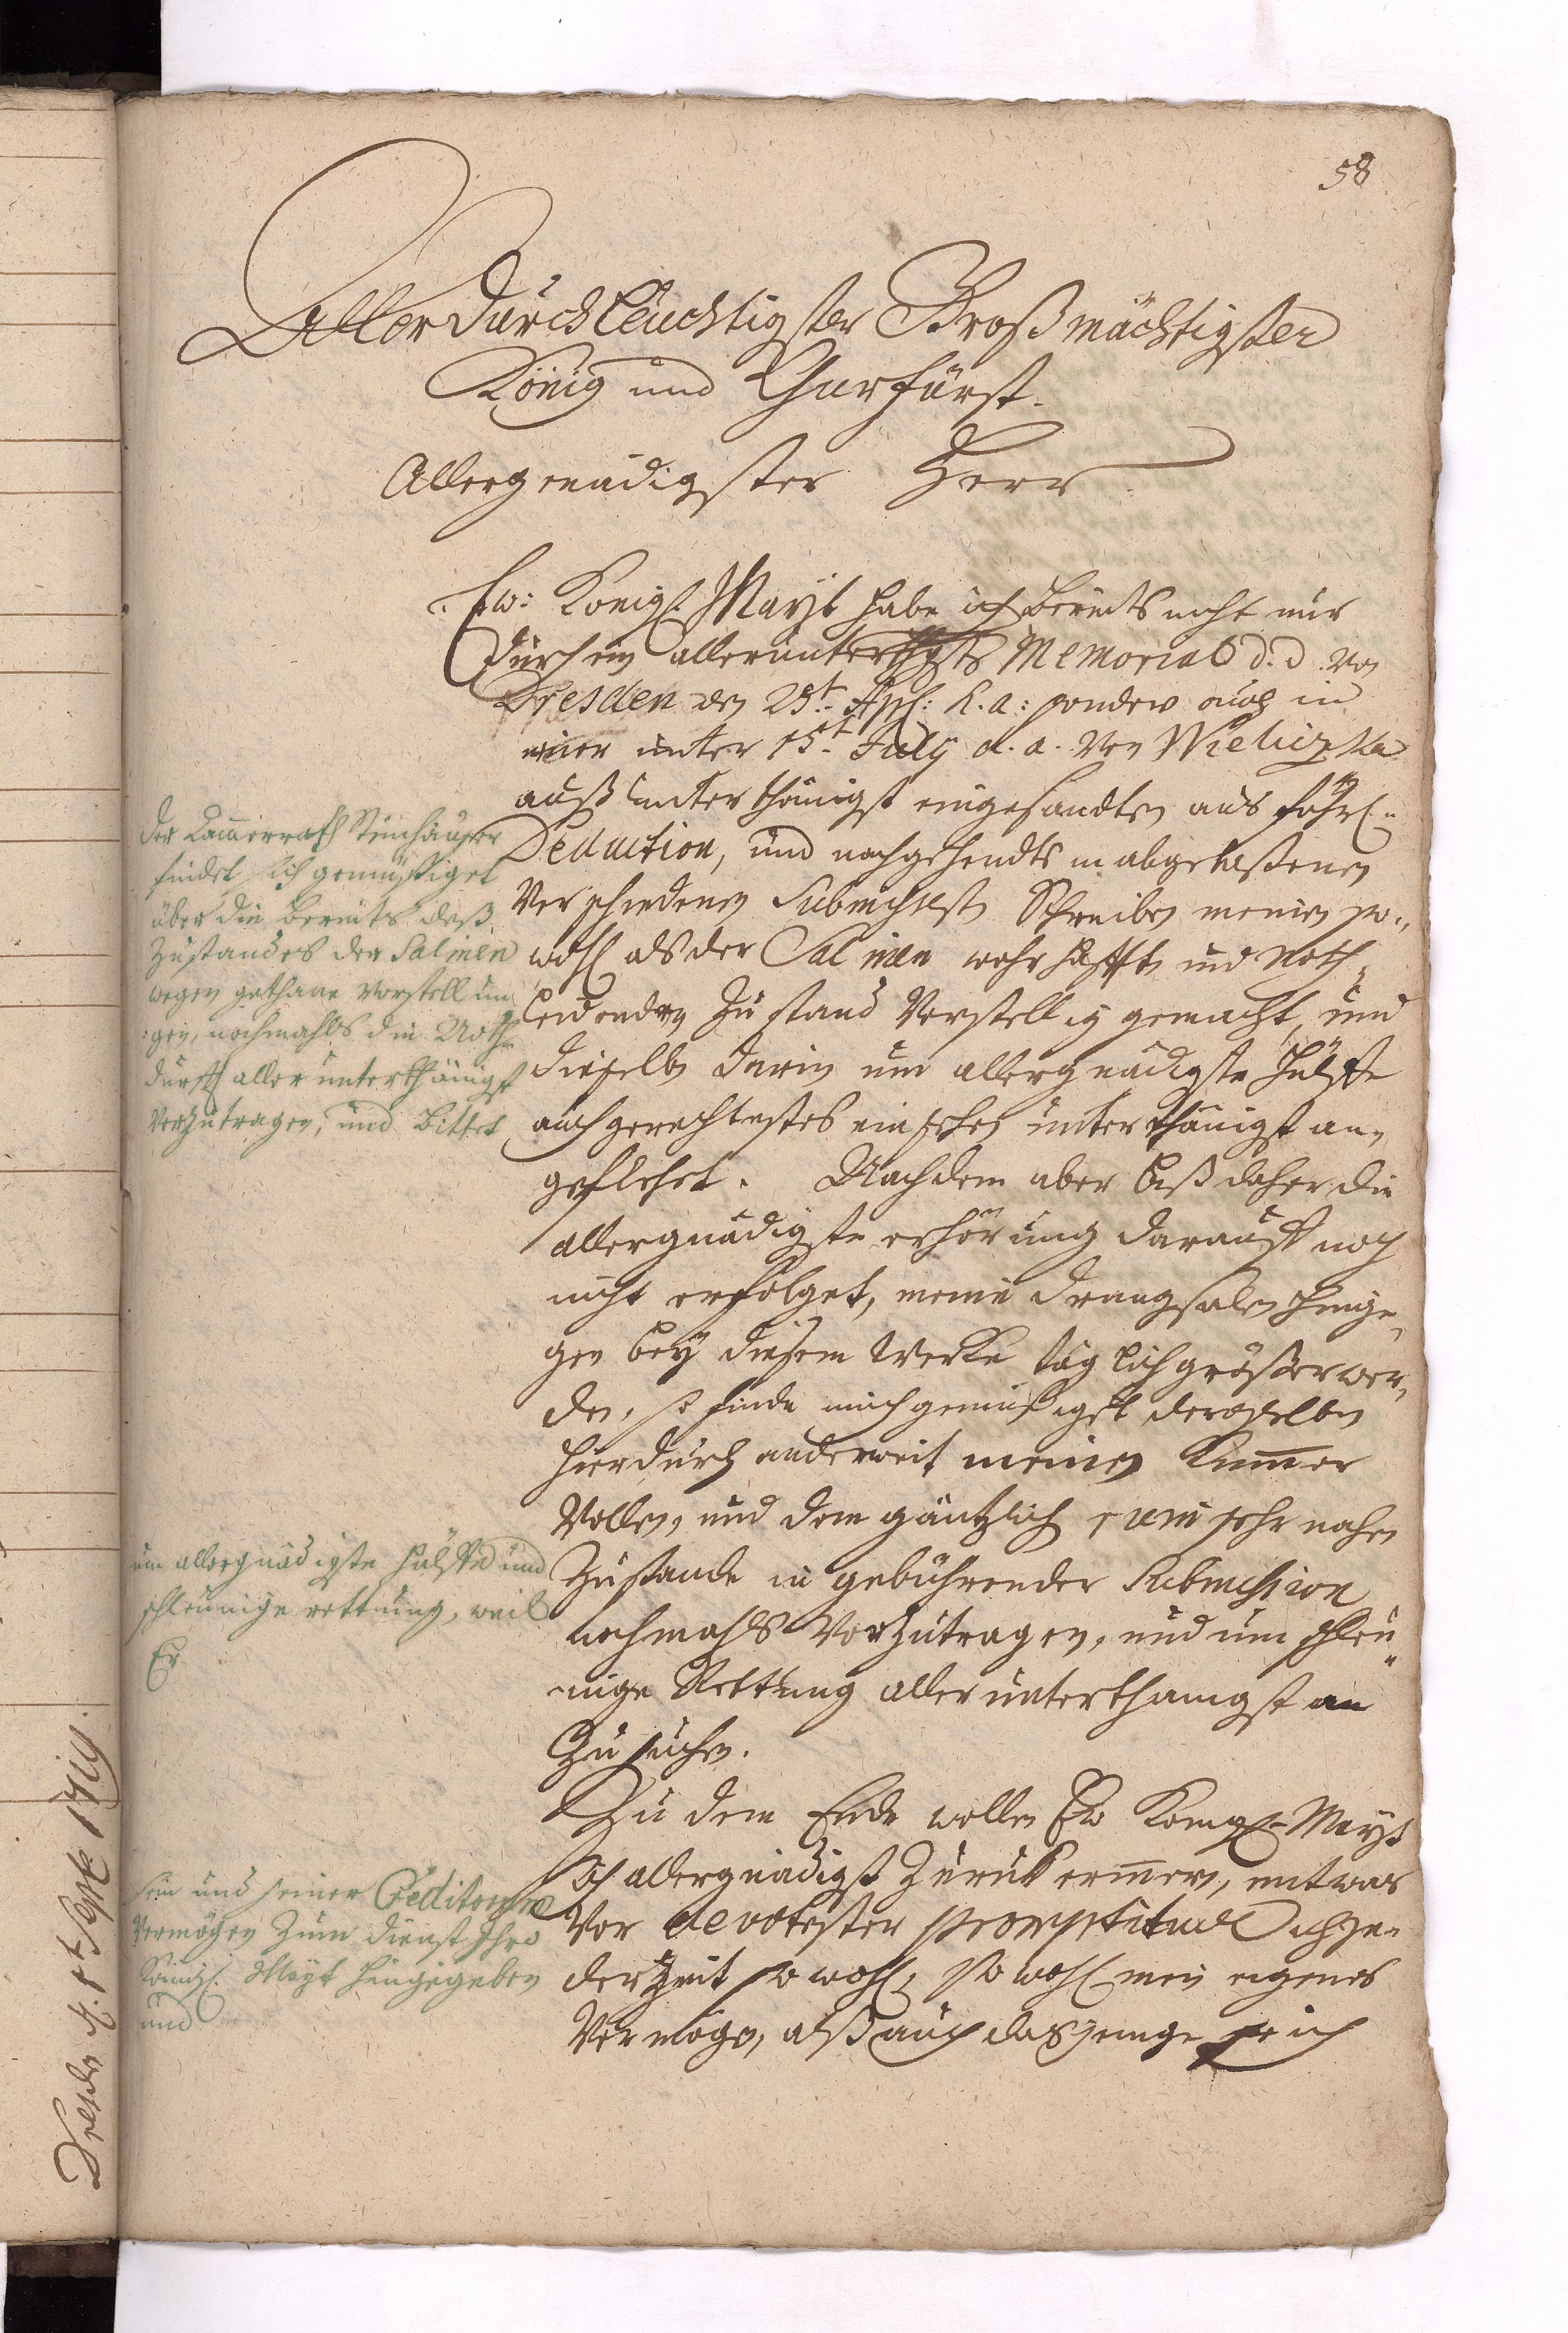 58
Allerdurchleuchtigster Großmächtigster
König und Churfürst.
Allergnädigster Herr
Ew: Königl. Mayt habe ich bereits nicht nur
durch ein allerunterthgstes Memorial d. d. von
Dresden den 25.t h. a: sondern auch in
einer unter 15.t July d. a. von Wieliczka
auß unterthänigst eingesandten ausführl.
Deduction, und nachgehendts in abgelaßenen
verschiedenen Submissesten Schreiben meinen so-
wohl als der Salinen wahrhafften und Noth-
leidenden Zustand vorstellig gemacht, und
dieselbe darin um allergnädigste Hülffe
auch gerechtestes einsehen unterthänigst an-
geflehet. Nachdem aber biß daher die
allergnädigste erhörung darauff noch
nicht erfolget, meine drangsalen hinge-
gen bey diesem Wercke täglich größer wer-
den, so finde mich gemüßiget deroselben
hierdurch anderweit meinen Kummer
vollen, und dem gäntzlich ruin sehr nahen
Zustande in gebührender Submission
nochmahls vorzutragen, und um schleu-
nige Rettung allerunterthänigst an
Zu suchen.
Zu dem Ende wollen Ew Königl. Mayt
sich allergnädigst Zurück erinnern, mit was
vor devotester promptitude ich je-
derzeit so wohl, so wohl mein eigenes
Vermögen, alß auch dasjenige so ich
der Cammerrath Steinhäuser
findet sich gemüßiget
über die bereits deß
Zustandes der Salinen
wegen gethane Vorstellun
:gen, nochmahls die Noth-
durfft allerunterthänigst
vorzutragen, und bittet
um allergnädigste hülffe und
schleunige rettung, weil
Er
sein und seiner Creditorum
Vermögen zum dienst Ihro
Königl. Mayt hingegeben
und
Dresden d. 1.t Sept. 1719.